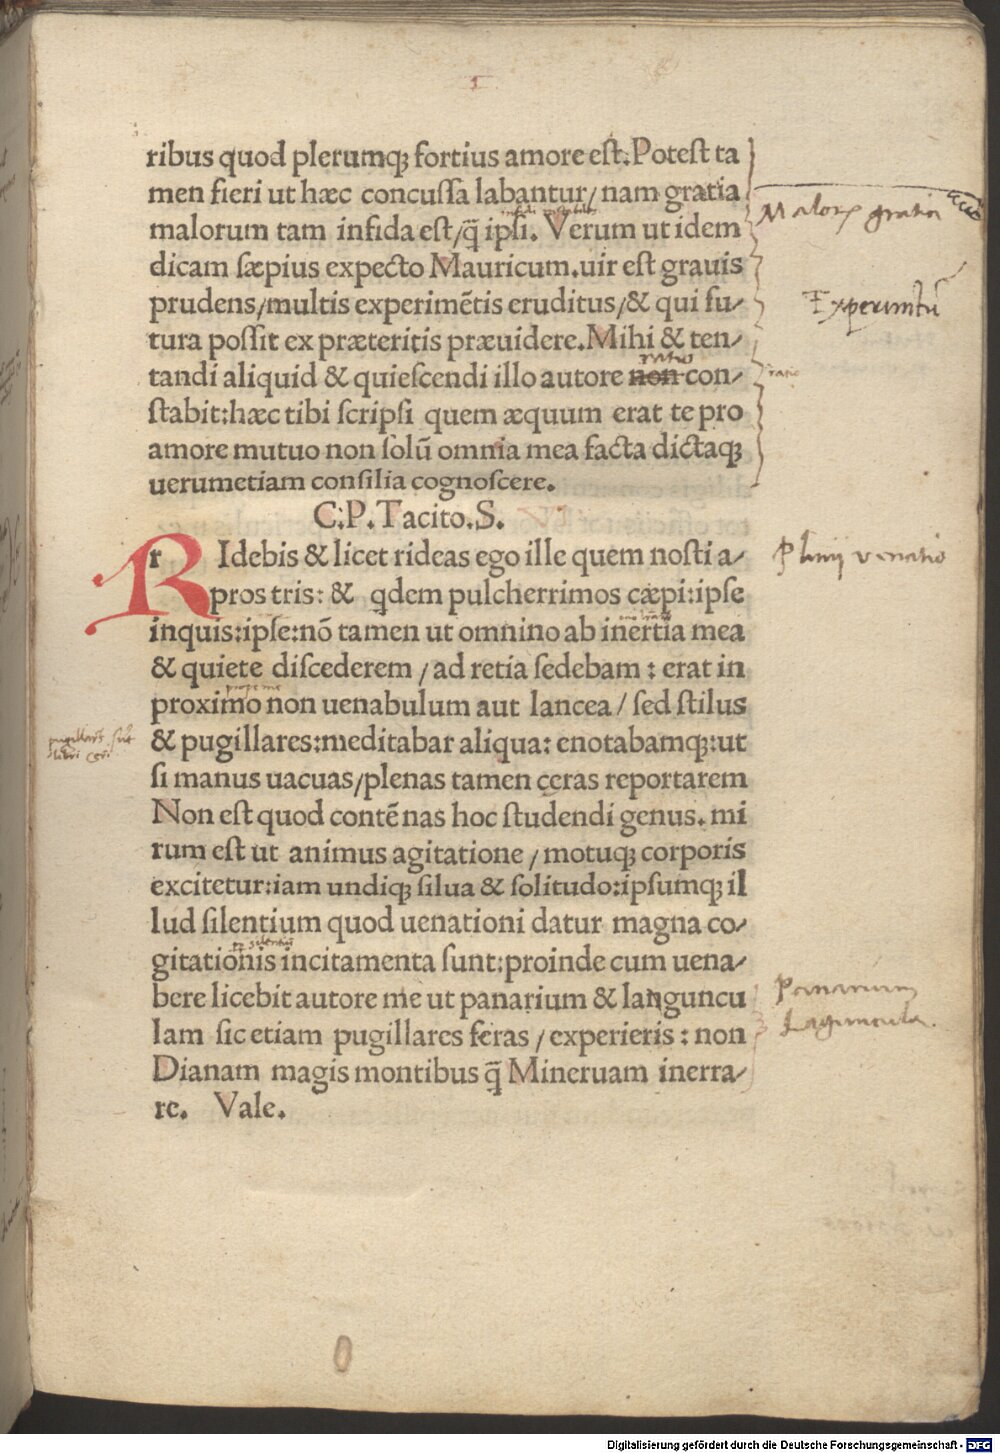 ribus quod plerumqꝫ fortius amore est. Potest ta
men fieri ut hæc concussa labantur/ nam gratia
malorum tam infida est/ q̄ ipsi. Verum ut idem
dicam sæpius expecto Mauricum. uir est grauis
prudens/ multis experimētis eruditus/ & qui fu/
tura possit ex præteritis præuidere. Mihi & ten/
ratio
tandi aliquid & quiescendi illo autore non con/
stabit: hæc tibi scripsi quem æquum erat te pro
amore mutuo non solū omnia mea facta dictaqꝫ
uerumetiam consilia cognoscere.
C. P. Tacito. S.
r Idebis & licet rideas ego ille quem nosti a/
R
pros tris: & qdem pulcherrimos cæpi: ipse
inquis: ipse: nō tamen ut omnino ab inertia mea
& quiete discederem / ad retia sedebam : erat in
prope me
proximo non uenabulum aut lancea / sed stilus
& pugillares: meditabar aliqua: enotabamqꝫ: ut
si manus uacuas/ plenas tamen ceras reportarem
Non est quod contē nas hoc studendi genus. mi
rum est ut animus agitatione / motuqꝫ corporis
excitetur: iam undiqꝫ silua & solitudo: ipsumqꝫ il
lud silentium quod uenationi datur magna co/
gitationis incitamenta sunt: proinde cum uena/
bere licebit autore me ut panarium & languncu
lam sic etiam pugillares feras / experieris : non
Dianam magis montibus q̄ Mineruam inerra/
re. Vale.
Malorꝝ gratia
Experimētū
ratio
Plinij venatio
Panarium
Laguncula.
pugillares
libri
Digitalisierung gefördert durch die Deutsche Forschungsgemeinschaft - DFG